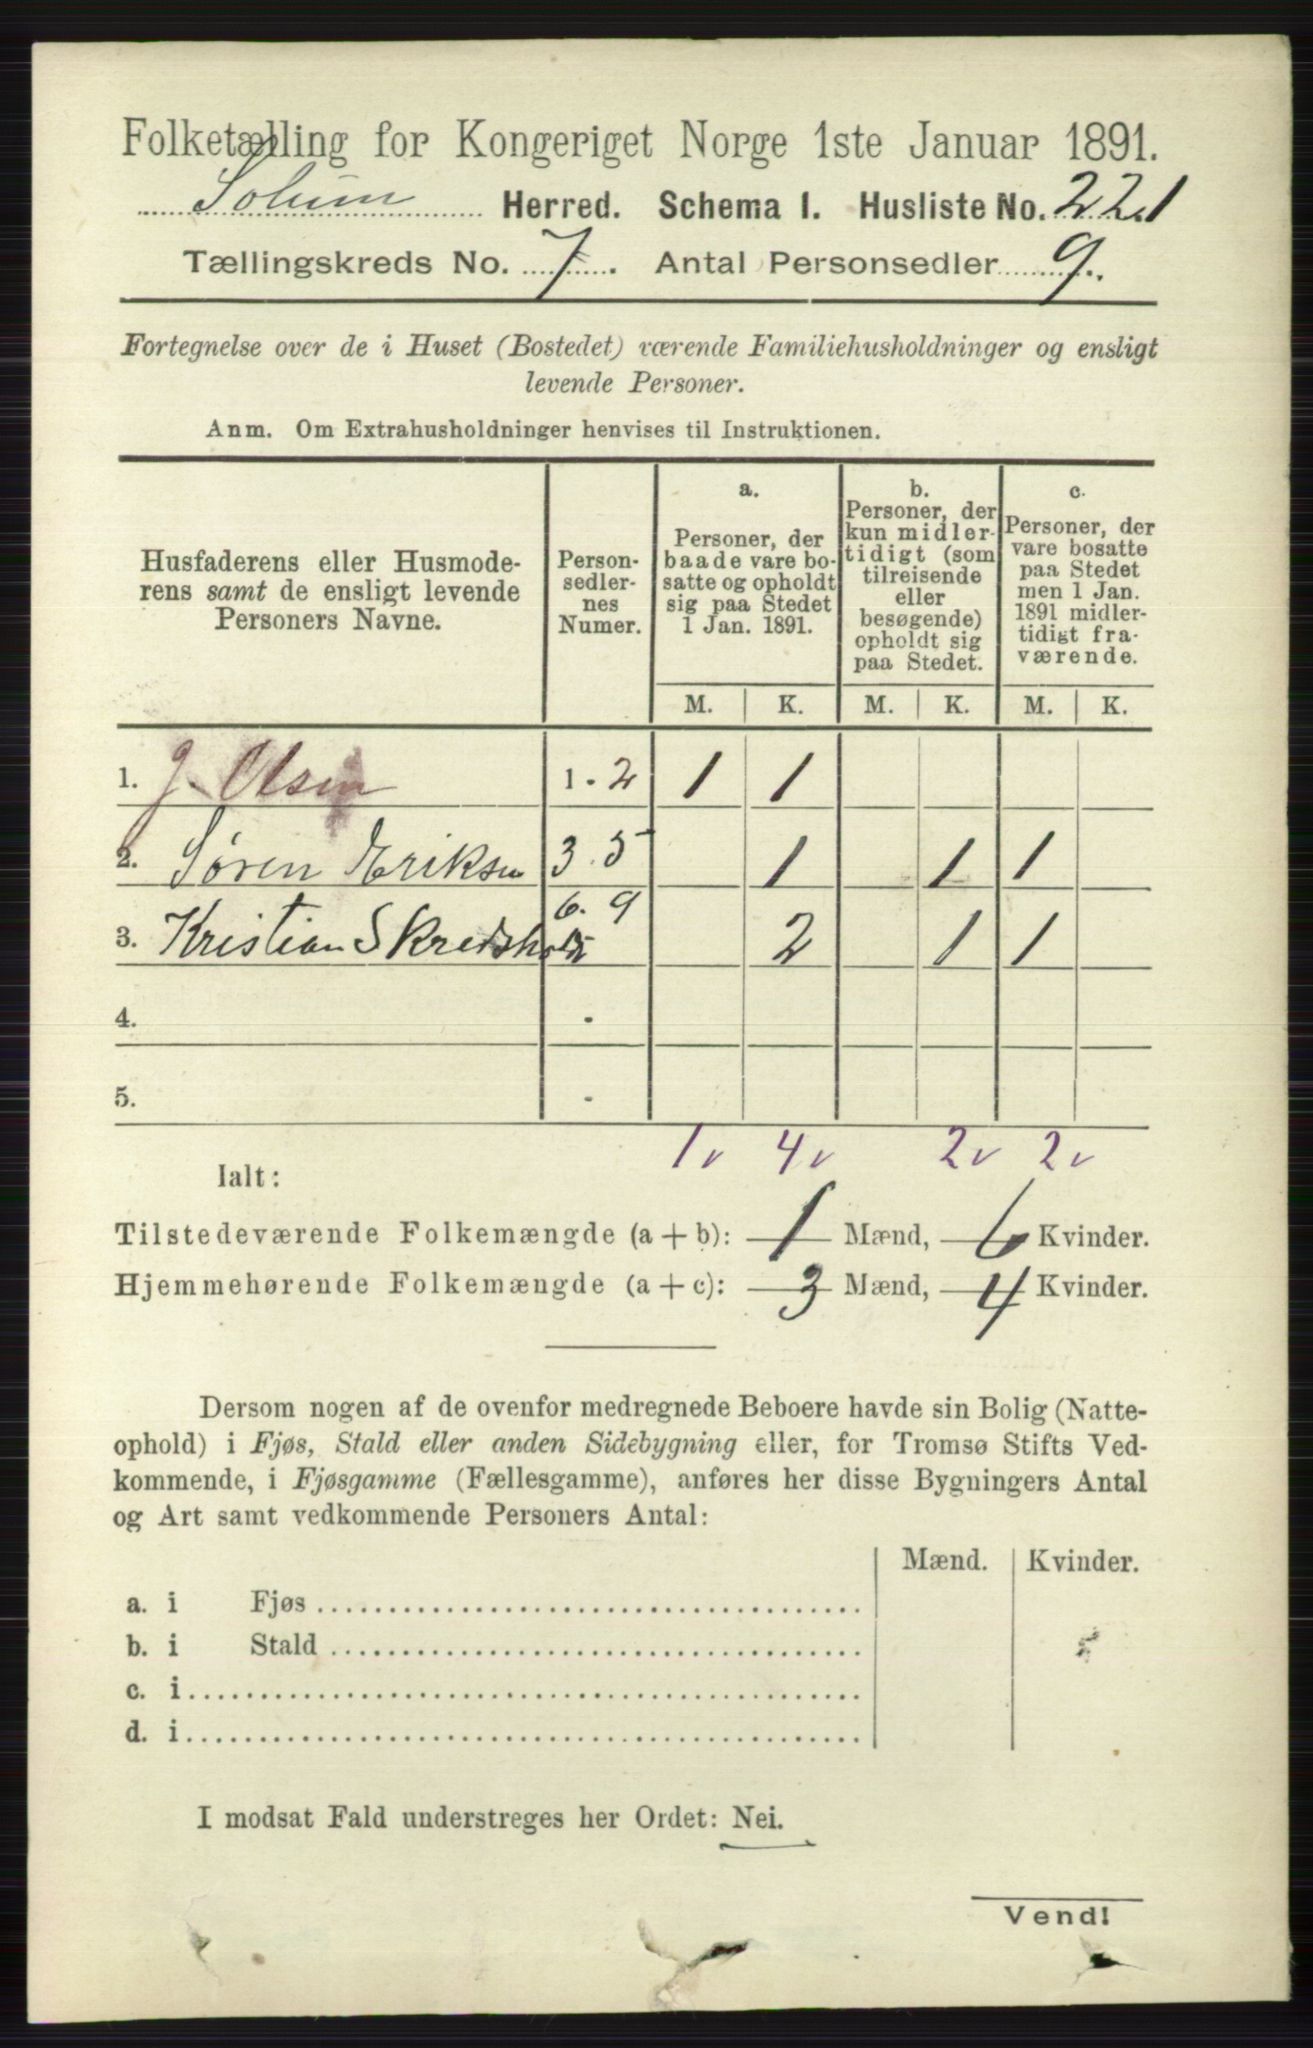 Folketælling for Kongeriget Norge 1ste Januar 1891.
Solum Herred. Schema I. Husliste No. 221
Tællingskreds No. 7. Antal Personsedler 9.
Fortegnelse over de i Huset (Bostedet) værende Familiehusholdninger og ensligt
levende Personer.
Anm. Om Extrahusholdninger henvises til Instruktionen.
Husfaderens eller Husmode-
rens samt de ensligt levende
Personers Navne.
Person-
sedler-
nes
Numer.
a.
Personer, der
baade vare bo-
satte og opholdt
sig paa Stedet
1 Jan. 1891.
b.
Personer, der
kun midler-
tidigt (som
tilreisende
eller
besøgende)
opholdt sig
paa Stedet.
c.
Personer, der
vare bosatte
paa Stedet
men 1 Jan.
1891 midler-
tidigt fra-
værende.
M. K. M. K. M. K.
1. J. Olsen 1 - 2 1 1
2. Søren Eriksen 3 . 5 1 1 1
6. 9
3. Kristian Skredsholt 2 1 1
4. -
5. -
1 v 4 v 2 v 2 v
Ialt:
Tilstedeværende Folkemængde (a + b): 1 Mænd, 6 Kvinder.
Hjemmehørende Folkemængde (a + c): 3 Mænd, 4 Kvinder.
Dersom nogen af de ovenfor medregnede Beboere havde sin Bolig (Natte-
ophold) i Fjøs, Stald eller anden Sidebygning eller, for Tromsø Stifts Ved-
kommende, i Fjøsgamme (Fællesgamme), anføres her disse Bygningers Antal
og Art samt vedkommende Personers Antal:
Mænd. Kvinder.
a. i Fjøs
b. i Stald
c. i
d. i
I modsat Fald understreges her Ordet: Nei.
Vend!